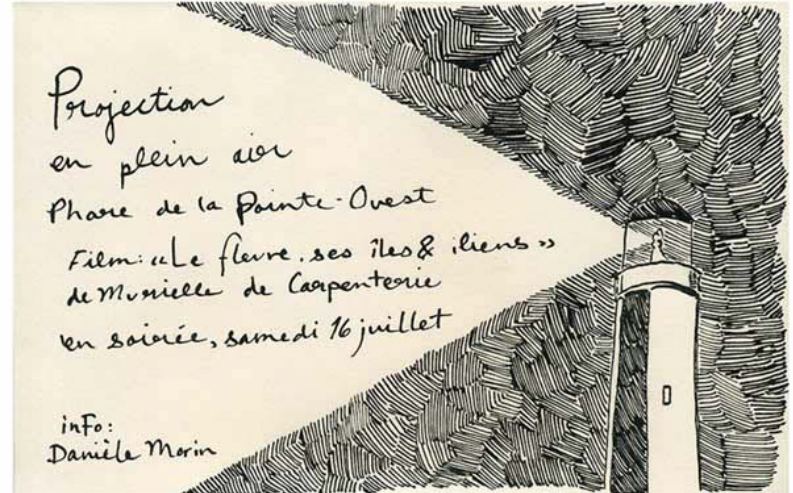 Projection
en plein air
Phare de la Pointe-Ouest
Film: «Le fleuve, ses îles & iliens»
de Murielle de Carpenterie
en soirée, samedi 16 juillet
info:
Danièle Morin